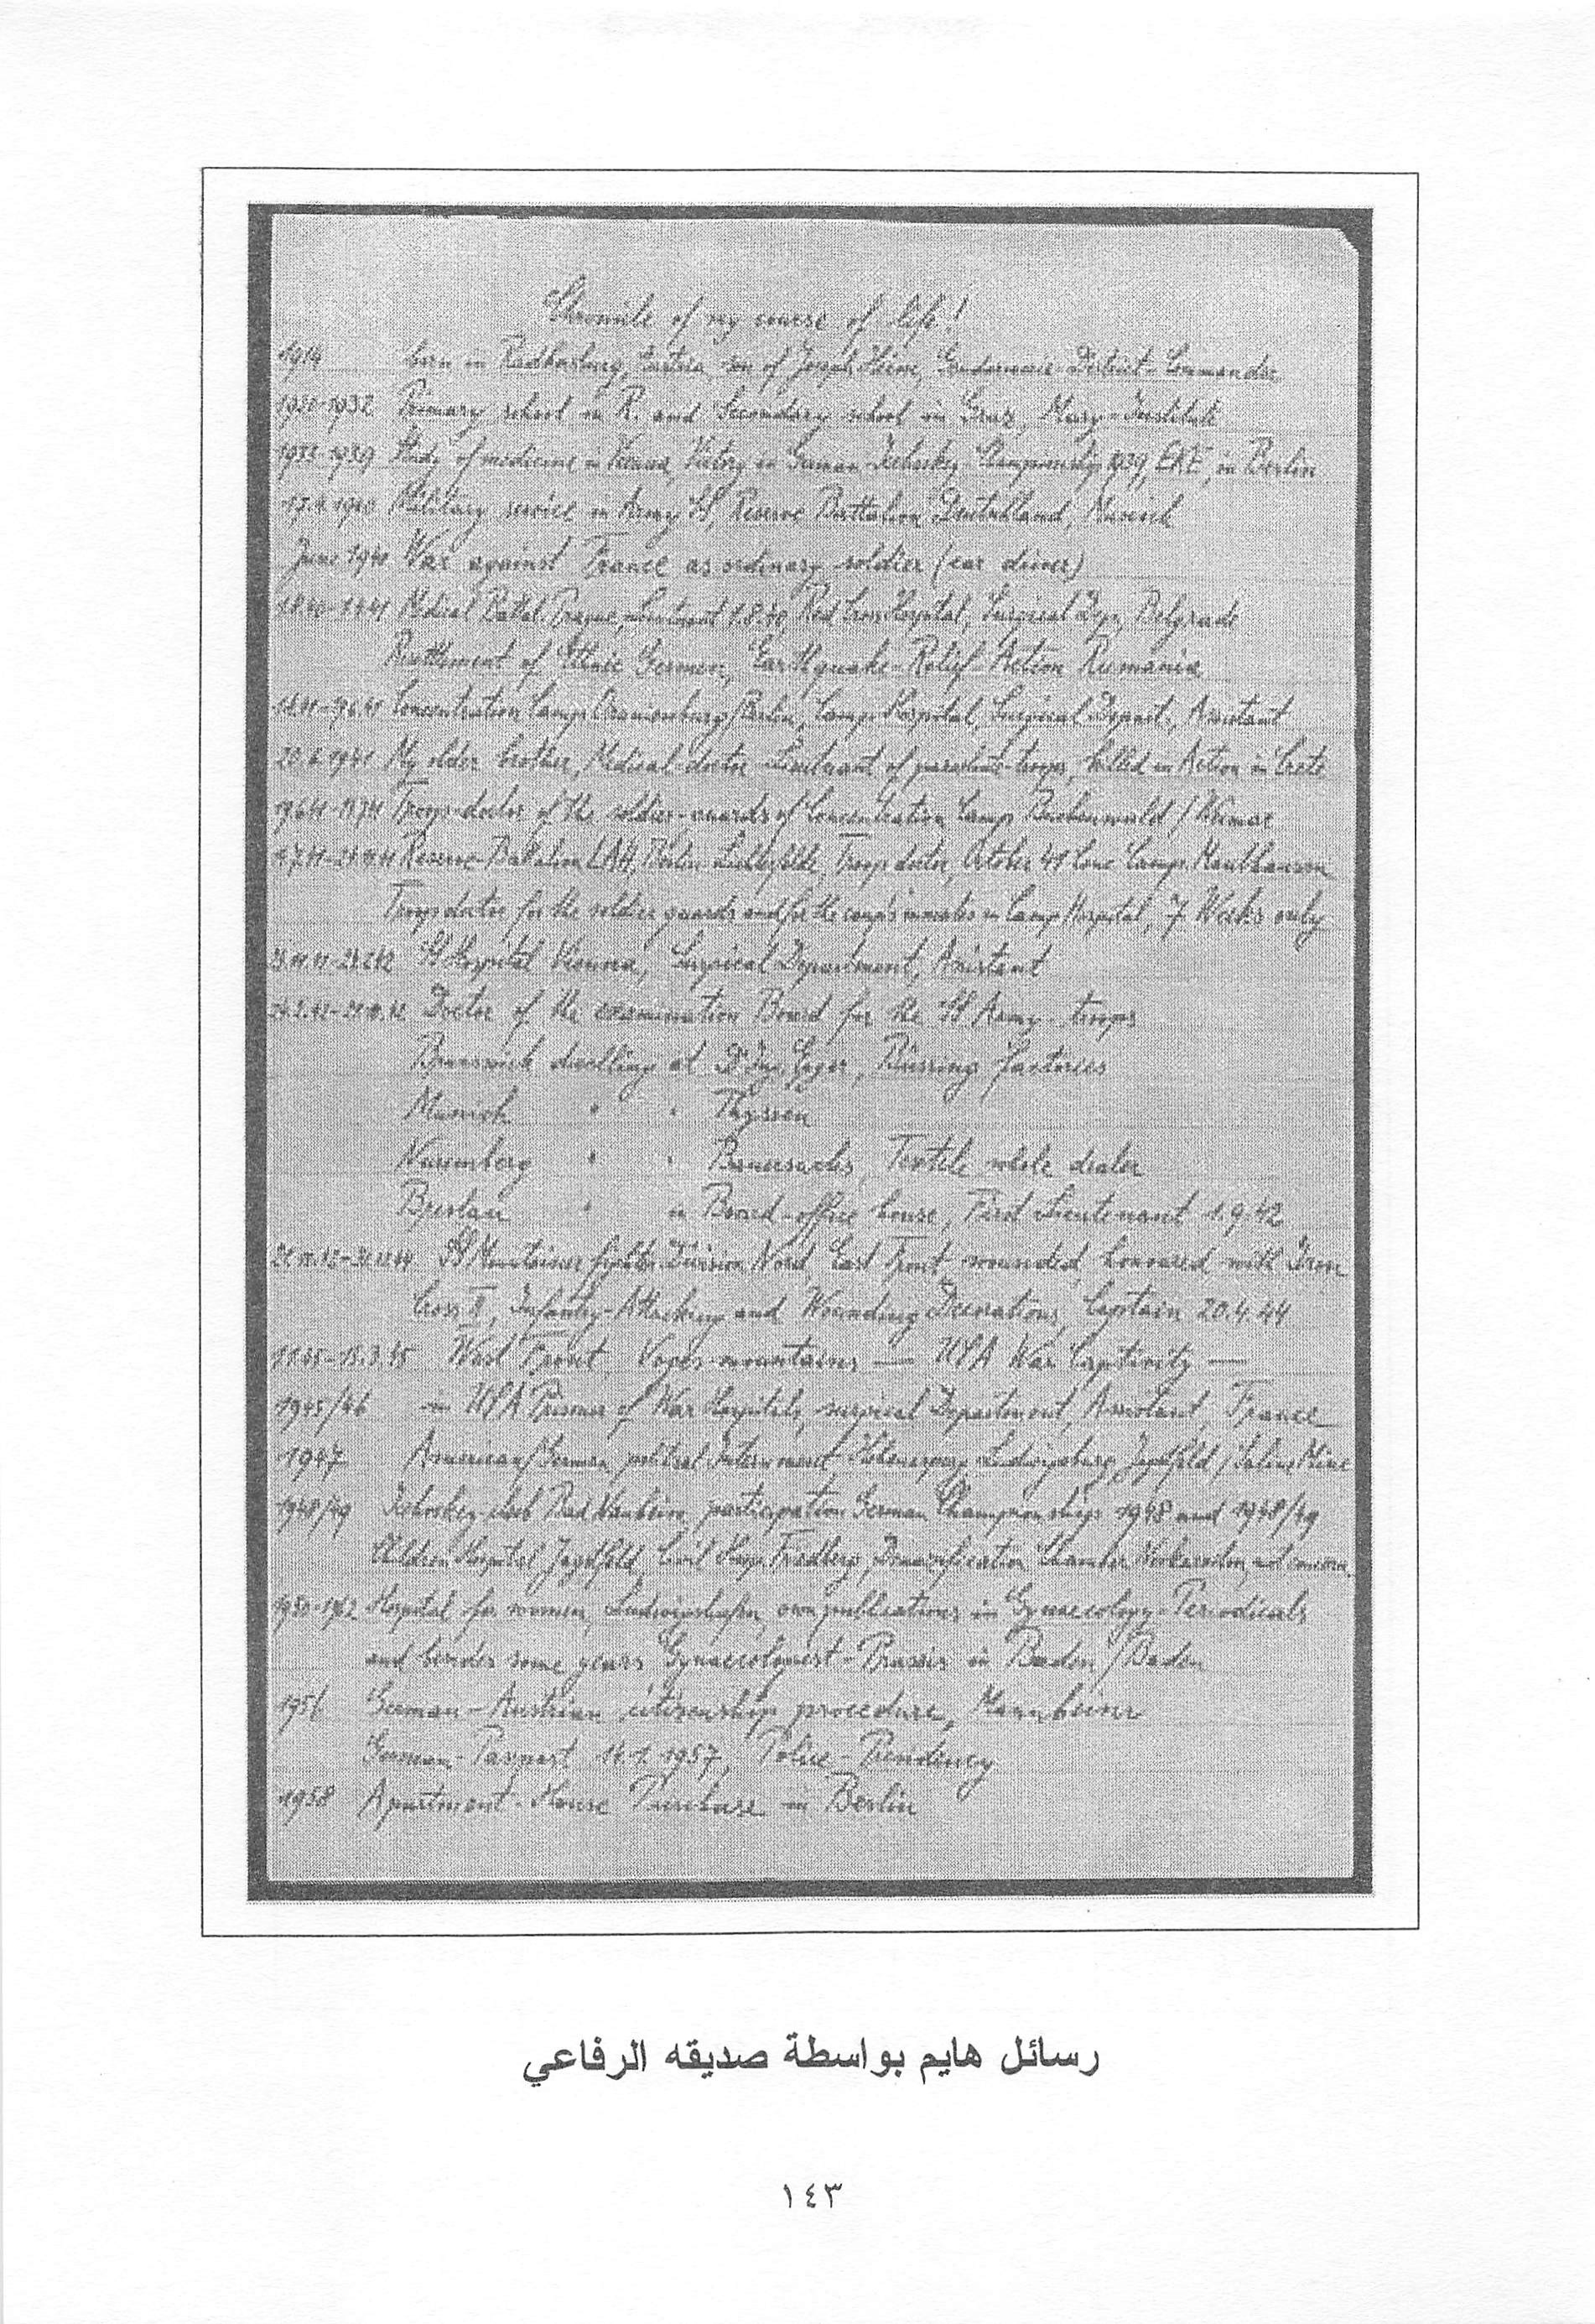 Chronicle of my course of life!
1914 born in Radkersburg, Austria, son of Joseph Heim, Gendarmerie District-Commander
1920-1932 Primary school in R. and Secondary school in Graz, Mary-Institute
1933-1939 Study of medicine in Vienna, Victory in German Icehockey-Championship 1939, EKE, in Berlin
17.4.1940 Military service in Army SS, Reserve Battalion Deutschland, Munich
June 1940 War against France as ordinary soldier (car driver)
Medical Battal. Prague, Lieutenant 1.8.40, Red Cross Hospital, Surgical Dep. Belgrade
Resettlement of Ethnic Germen, Earthquake-Relief-Action Rumania
Concentration Camp Oranienburg/Berlin, Camp Hospital, Surgical Depart., Assistant
20.6.1941 My older brother, Medical doctor Lieutenant of parachute troops, killed in Action in Crete
Troops-doctor of the soldier-guards of Concentration Camp Buchenwald / Weimar
Reserve-Battalion LAH, Berlin Lichterfelde, Troop doctor, October 41 Conc Camp. Mauthausen
Troops doctor for the soldier guards and for the camps inmates in Camp Hospital, 7 Weeks only
SS Hospital Vienna, Surgical Department, Assistant
Doctor of the examination Board for the SS Army-troops
Brunswick dwelling at Büssing factories
Munich " " Thyssen
Nuremberg " " Bauersachs, Textile whole dealer
Breslau " in Board-office house, First Lieutenant 1.9.42
SS Mountaineer fighter Division Nord, East Front, wounded, honoured with Iron
Cross II, Infantry-Attacking and Wounding Decorations, Captain 20.4.44
1.1.45-15.3.45 West Front, Voges mountains — USA War Captivity —
1945/46 in USA Prisoner of War Hospitals, surgical Department, Assistant, France
1947 American/German political Internment Hohenasperg, Ludwigsburg, Jagstfeld / Saline Mine
1948/49 Icehockey-club Bad Nauheim, participation German Championships 1948 and 1948/49
Children Hospital Jagstfeld, Civil Hosp. Friedberg, Denazification Chamber Neckarsulm, not concern.
Hospital for women, Ludwigshafen, own publications in Gynaecology-Periodicals
and besides some years Gynaecologuest-Praxis in Baden/Baden
1956 German-Austrian citizenship procedure, Mannheim
German-Passport 14.1.1957, Police-Presidency
1958 Apartment-House Purchase in Berlin
رسائل هايم بواسطة صديقه الرفاعي
١٤٣